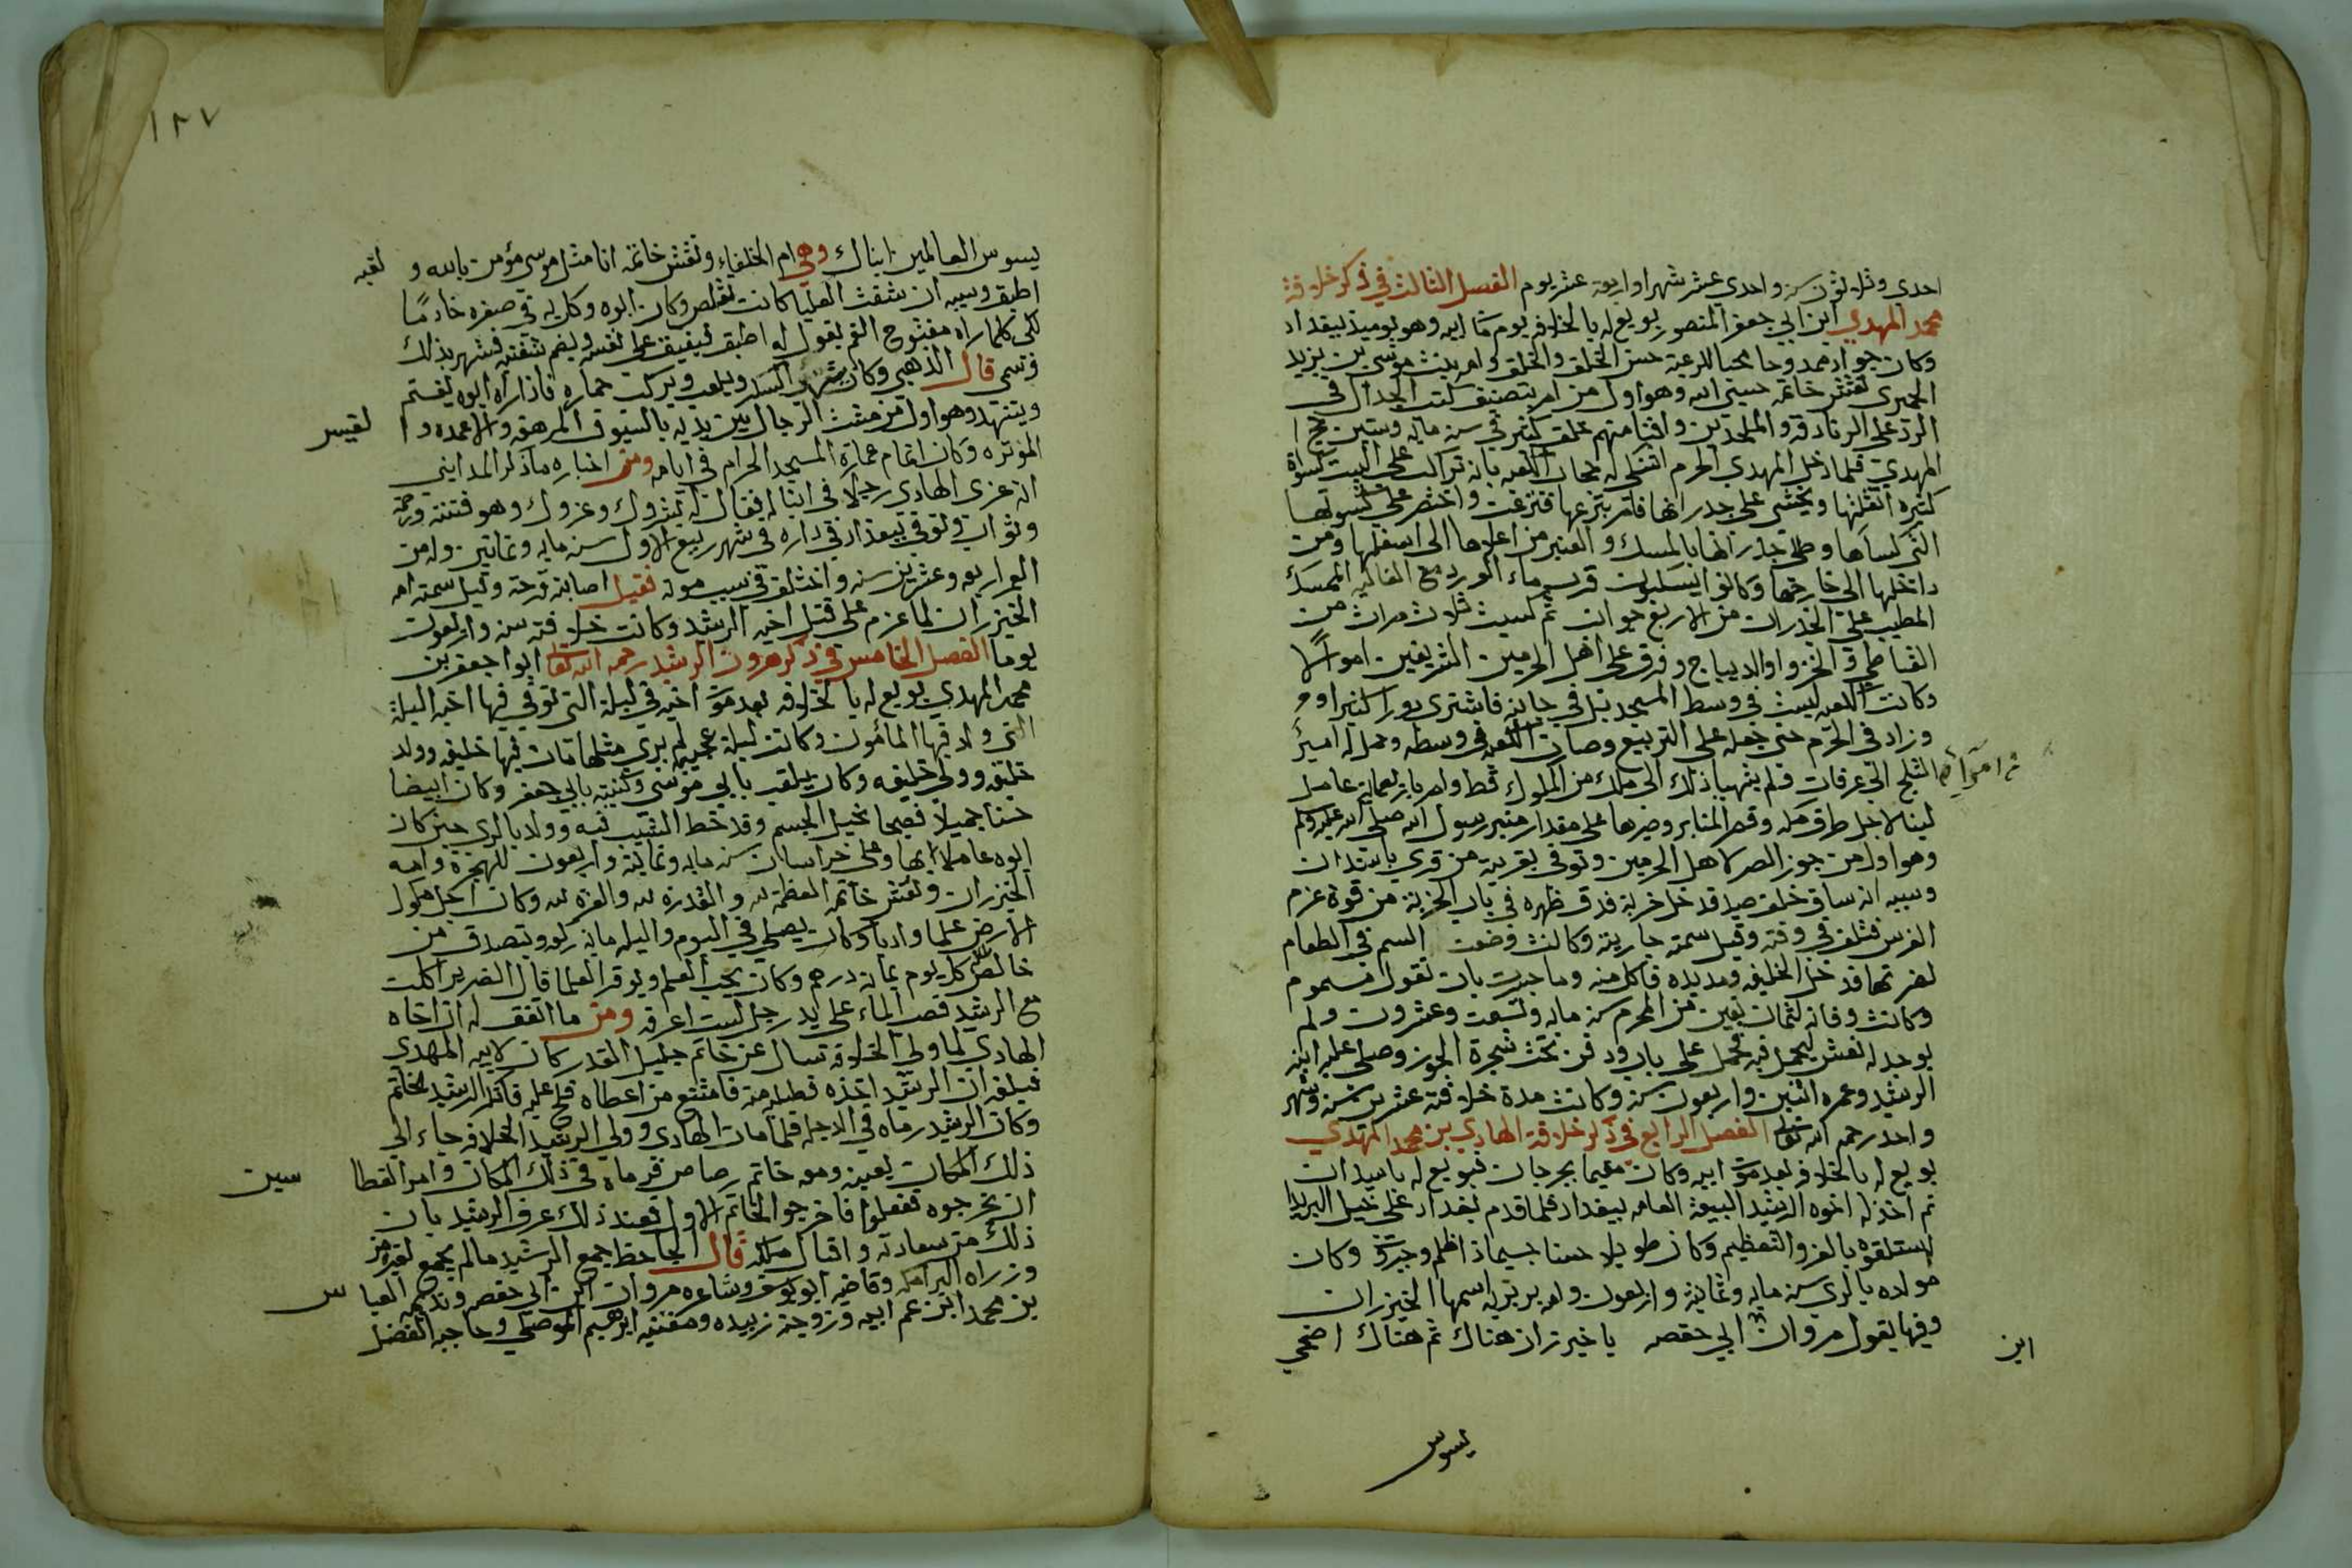 احدى وثلاثون سنة واحدى عشر شهرا واربعة عشر يوم الفصل الثالث في ذكر خلافة
محمد المهدي ابن ابي جعفر المنصور بويع له بالخلافه يوم مات ابيه وهو يوميذ ببغداد
وكان جوادا ممدوحا محبا للرعية حسن الخلق والخلق وامه بنت موسى بن يزيد
الحميرى نقش خاتمه حسبي الله وهو اول من امر بتصنيف كتب الجدال في
الرد على الزنادقه والملحدين وافنا منهم خلق كثير في سنه مايه وستين حج
المهدي فلما دخل المهدي الحرم اشتكى له حجاب الكعبه بانه تراكت على البيت كسوة
كثيره اثقلتها ويخشى على جدرانها فامر بنزعها فنزعت واختصر على كسوتها
التى كساها وطلى جدرانها بالمسك والعنبر من اعلاها الى اسفلها ومن
داخلها الى خارجها وكانوا يسكبون قرب ماء الورد مع الغاليه الممسك
المطيب على الجدران من الاربع جوانب ثم كسيت ثلاث مرات من
القباطى والخز والديباج وفرق على اهل الحرمين الشريفين اموالا
وكانت الكعبه ليست في وسط المسجد بل في جانبه فاشترى دورا كثيرا وم
وزاد في الحرم حتى جعله على التربيع وصارت الكعبه في وسطه وحمل له امير
الثلج الى عرفات فلم يتهيا ذلك الى ملك من الملوك قط وامر بازبعماية عامل
لبنا لاجل طرق مكه وقصر المنابر وصيرها على مقدار منبر رسول الله صلى الله عليه وسلم
وهو اول من جوز المصر لاهل الحرمين وتوفى بقرية من قرى باسندان
وسببه انه ساق خلف صيد فدخل خربة فدق ظهره في باب الخربة من قوة عزم
الفرس فتلف في وقته وقيل سمته جاريته وكانت وضعت السم في الطعام
لضرتها فدخل الخليفه ومد يده فاكل منه وما جسرت بان تقول مسموم
وكانت وفاته لثمان بقين من المحرم سنه مايه وتسعت وعشرون ولم
يوجد له نعش ليحمل فيه فحمل على باب ودفن تحت شجرة الجوز وصلى عليه ابنه
الرشيد وعمره اثنين واربعون سنه وكانت مدة خلافته عشر سنين وشهر
واحد رحمه الله تعالى الفصل الرابع في ذكر خلافة الهادي بن محمد المهدي
بويع له بالخلافه بعد موت ابيه وكان مقيما بجرجان فبويع له باسبدان
ثم اخذ له اخوه الرشيد البيعة العامه ببغداد فلما قدم بغداد على خيل البريد
استلقوه بالعز والتعظيم وكان طويلا حسنا جسيما ذا ظلم وجبروت وكان
مولده بالرى سنه مايه وثمانية واربعون وامه بربريه اسمها الخيزران
وفيها يقول مروان ابي حفصه يا خيزران هناك ثم هناك اضحى
ابن
يسوس
١٢٧
يسوس العالمين ابناك وهي ام الخلفاء ونقش خاتمه انا مثل موسى مؤمن بالله و لقبه
اطبق وسببه ان شفته العليا كانت تقلص وكان ابوه وكل به في صغره خادمًا
لكى كلما راه مفتوح الفم يقول له اطبق فيفيق على نفسه ويضم شفته فشهر بذلك
فوسمى قال الذهبي وكان يشرب المسكر ويلعب ويركب حماره فاذا رآه ابوه يغتم
ويتنهد وهو اول من مشت الرجال بين يديه بالسيوف المرهفه والاعمده وا لقيسى
الموتره وكان اتمام عمارة المسجد الحرام في ايامه ومن اخباره ما ذكر المدايني
انه عزى الهادى رجلا في ابنا له فقال له يسروك وغروك وهو فتنة ورحمة
وثواب وتوفي ببغداد في داره في شهر ربيع الاول سنه مايه وثمانين وله من
العمر اربعه وعشرين سنه واختلف في سبب موته فقيل اصابته قرحة وقيل سمته امه
الخيزران لما عزم على قتل اخيه الرشيد وكانت خلافته سنه واربعون
يوما الفصل الخامس في ذكر هرون الرشيد رحمه الله تعالى ابوا جعفر بن
محمد المهدي بويع له بالخلافه بعد موت اخيه في ليلة التى توفي فيها اخيه الليلة
التى ولد فيها المأمون وكانت ليلة عجيبه لم يرى مثلها مات فيها خليفه وولد
خليفه وولي خليفه وكان يلقب بابي موسى وكنيته بابي جعفر وكان ابيضا
حسنا جميلا فصيحا نحيل الجسم وقد خط الشيب فيه وولد بالرى حين كان
ابوه عاملا بها وعلى خراسان سنه مايه وثمانية واربعون للهجرة وامه
الخيزران ونقش خاتمه العظمة لله والقدره لله والعزه لله وكان اجل ملوك
الارض علما وادبا وكان يصلي في اليوم والليله مايه ركعه ويتصدق من
خالص ماله كل يوم بمايه درهم وكان يحب العلم ويوقر العلما قال الضرير اكلت
مع الرشيد فصب الماء على يد رجل لست اعرفه ومن ما اتفق له ان اخاه
الهادي لما ولي الخلافه تسال عن خاتم جليل القدر كان لابيه المهدي
فبلغه ان الرشيد اخذه فطلبه منه فامتنع من اعطاه فلح عليه فانكر الرشيد الخاتم
وكان الرشيد رماه في الدجله فلما مات الهادى وولي الرشيد الخلافه جاء الى
ذلك المكان بعينه ومعه خاتم رصاص فرماه في ذلك المكان وامر الغطا سين
ان يخرجوه ففعلوا فاخرجوا الخاتم الاول فعند ذلك عرف الرشيد بان
ذلك من سعادته واقبال ملكه قال الجاحظ جمع الرشيد ما لم يجمع لغيره من
وزراه البرامكه وقاضيه ابو يوسف وشاعره مروان ابن ابي حفصه ونديمه العبا س
بن محمد ابن عم ابيه وزوجته زبيده ومغنيه ابرهيم الموصلي وحاجبه الفضل